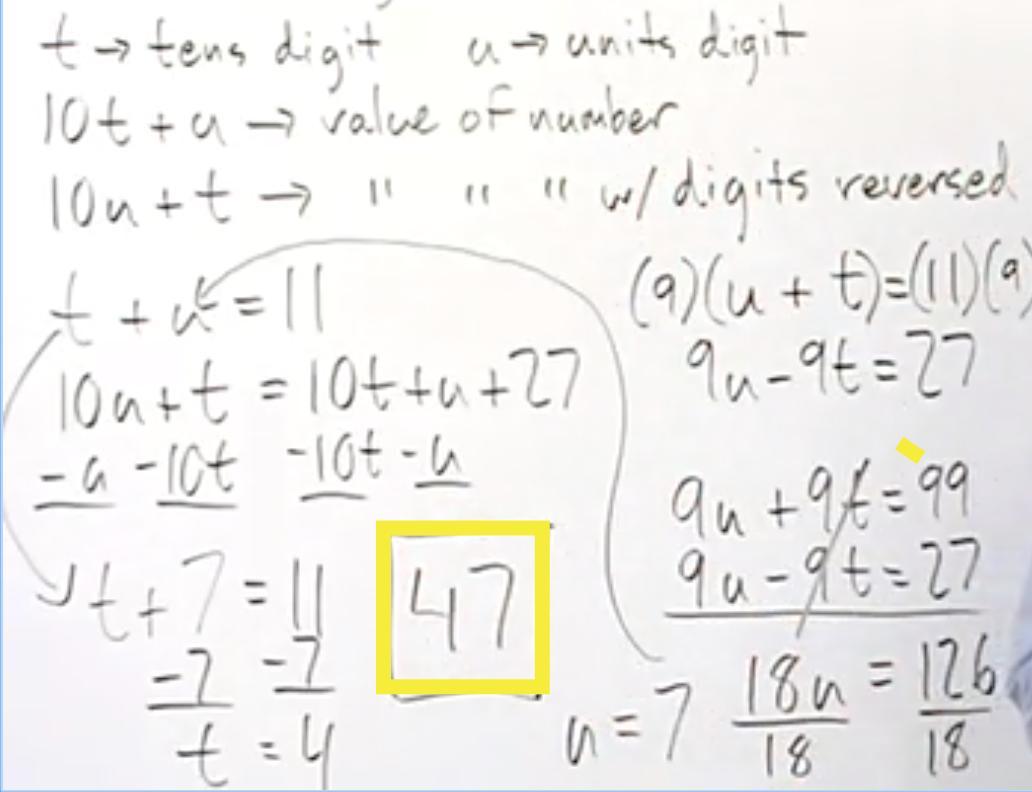 t → tens digit u → units digit
10t + u → value of number
10u + t → " " " w/ digits reversed
t + u = 11
10u + t = 10t + u + 27
-u -10t -10t -u
t + 7 = 11
-7 -7
t = 4
47
(9)(u + t) = (11)(9
9u - 9t = 27
9u + 9t = 99
9u - 9t = 27
18u = 126
18 18
u = 7